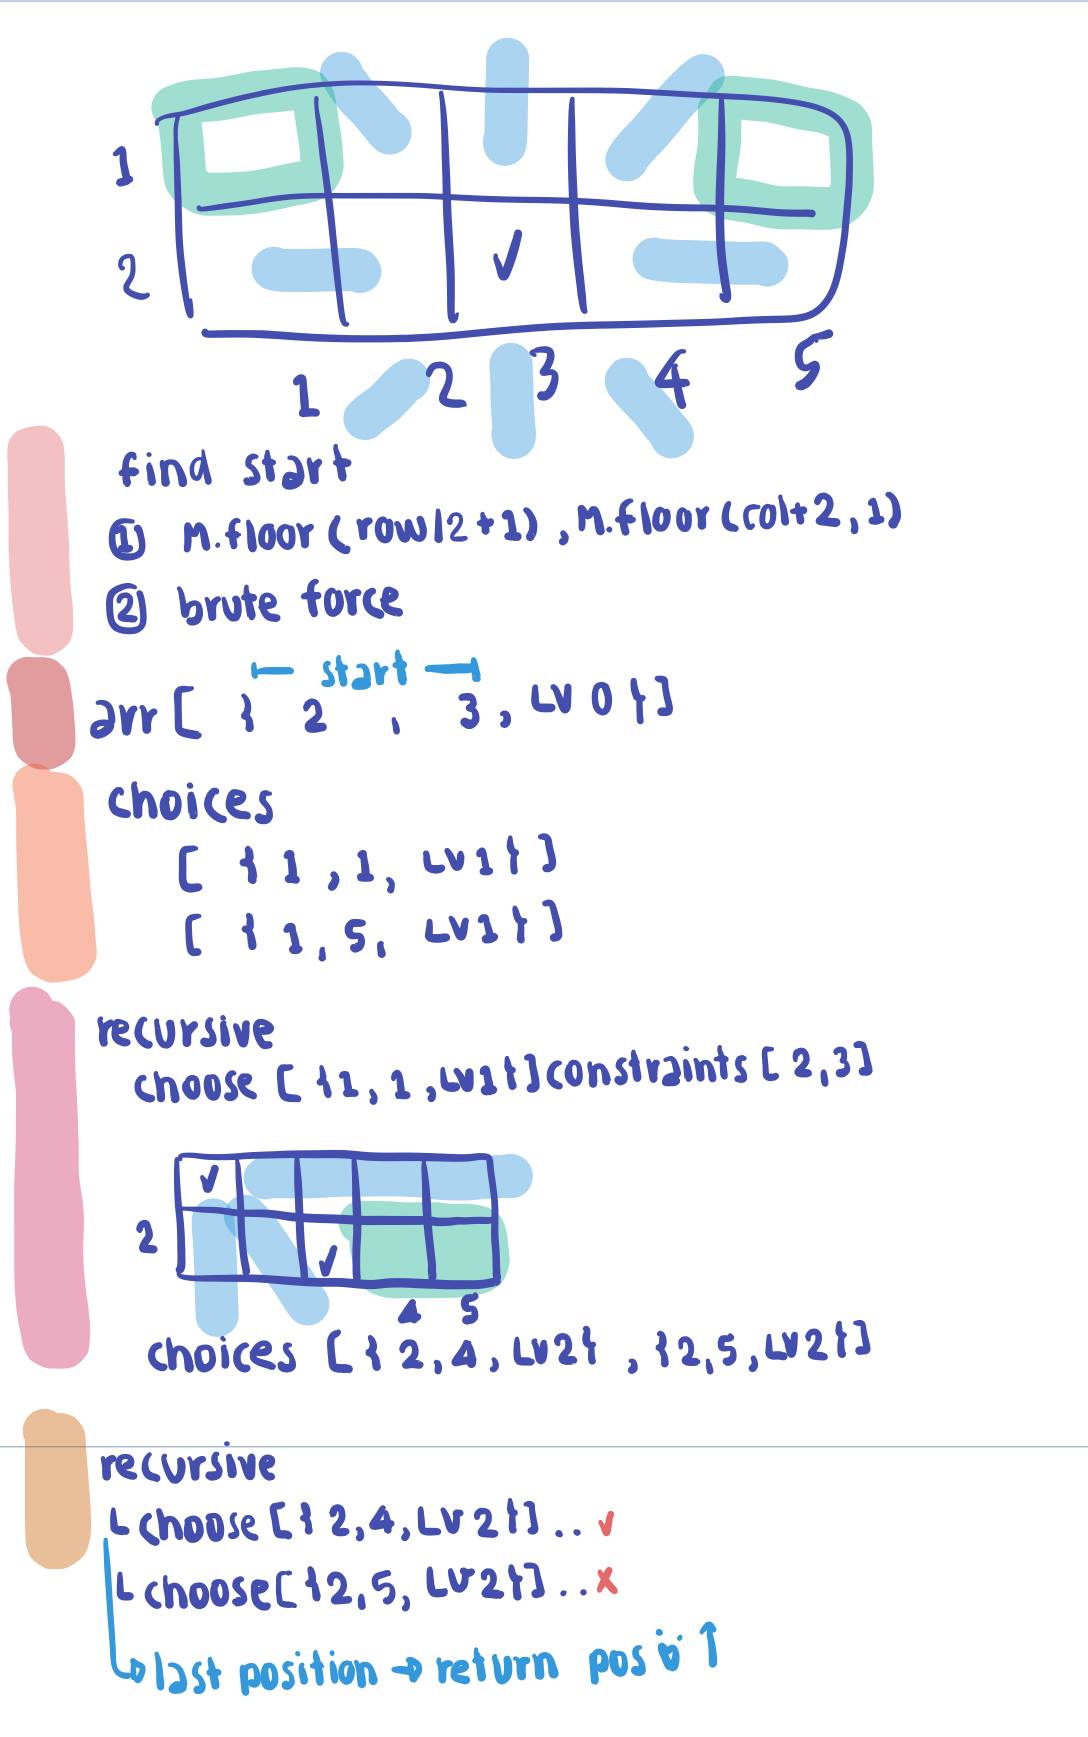 1
2 ✓
1 2 3 4 5
find start
① M.floor(row/2+1), M.floor(col+2,1)
② brute force
start
arr[ { 2 , 3, LV 0 } ]
choices
[ { 1, 1, LV1 } ]
[ { 1, 5, LV1 } ]
recursive
choose [ {1, 1, LV1} ] constraints [ 2,3 ]
✓
2 ✓
4 5
choices [ { 2,4, LV2} , {2,5, LV2} ]
recursive
└ choose [ { 2,4, LV 2} ] .. ✓
└ choose [ { 2,5, LV2} ] .. ✗
↳ last position → return pos ↑